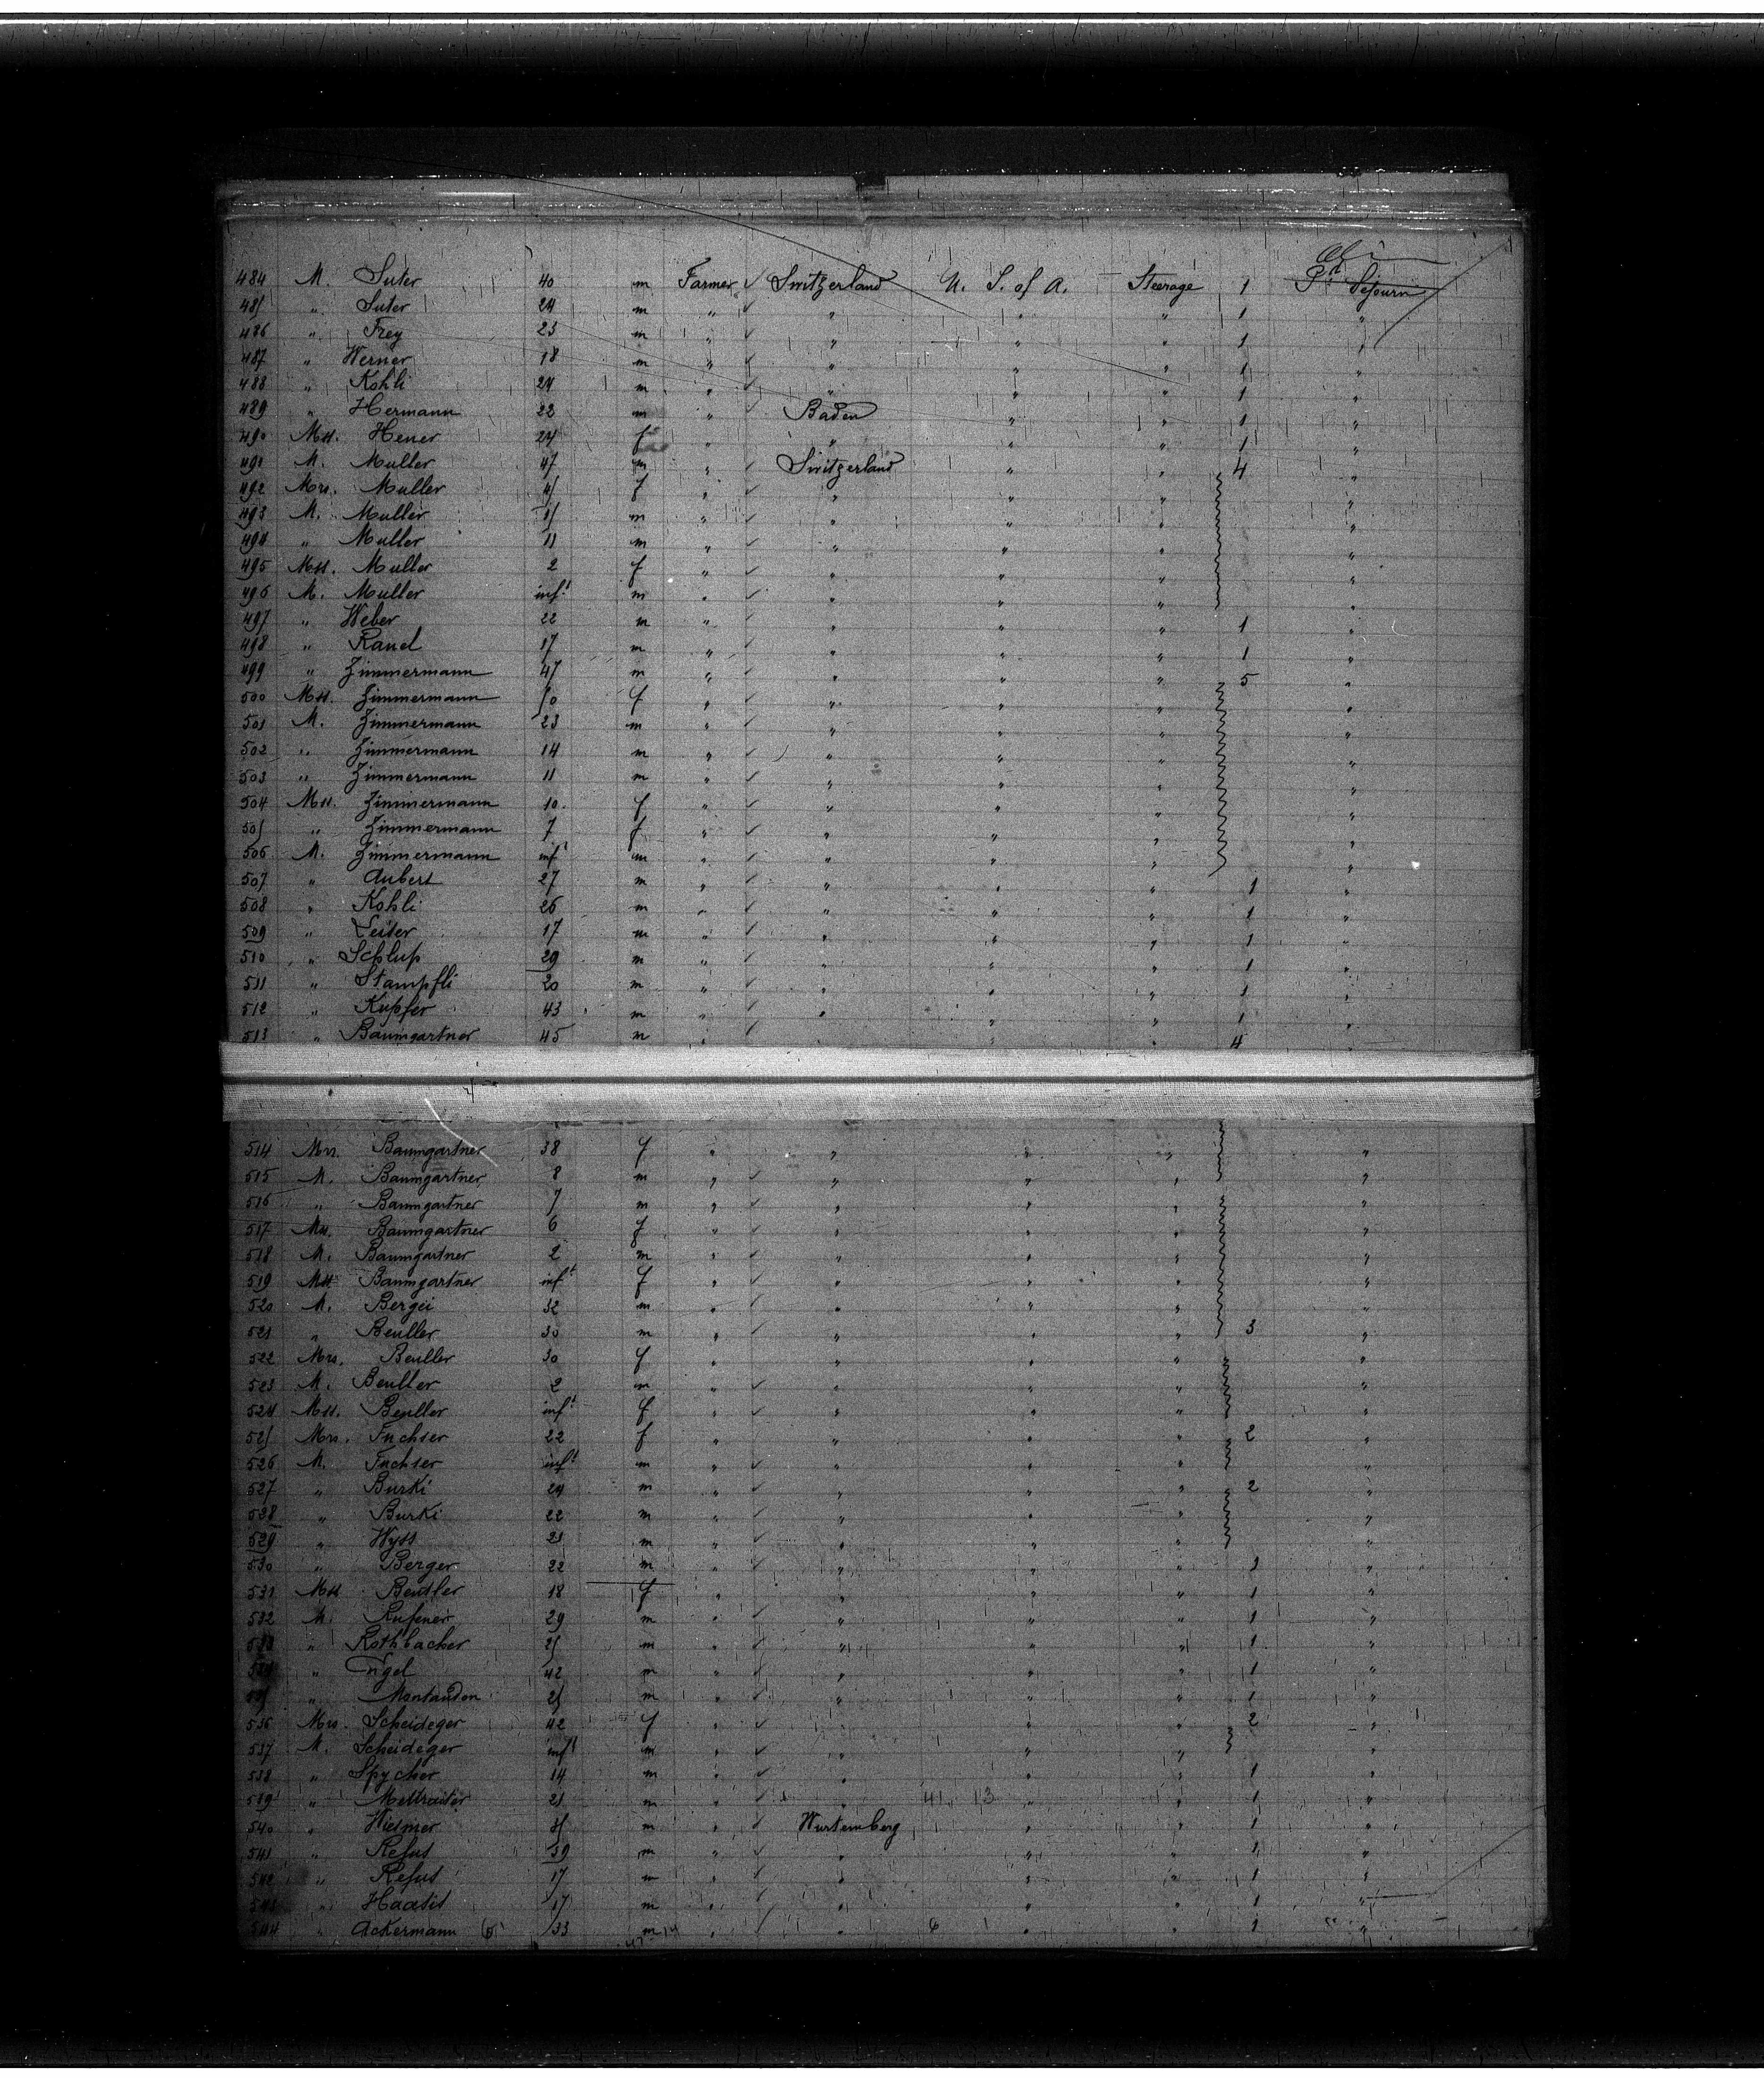 484 M. Suter 40 m Farmer ✓ Switzerland U. S. of A. Steerage 1 Pt Sejourn
485 " Suter 24 m " ✓ " " " 1 "
486 " Frey 23 m " ✓ " " " 1 "
487 " Werner 18 m " ✓ " " " 1 "
488 " Kohli 24 m " ✓ " " " 1 "
489 " Hermann 22 m " ✓ Baden " " 1 "
490 Mss. Hener 24 f " " " " 1 "
491 M. Muller 47 m " ✓ Switzerland " " 4 "
492 Mrs. Muller 45 f " ✓ " " " "
493 M. Muller 15 m " ✓ " " " "
494 " Muller 11 m " ✓ " " " "
495 Mss. Muller 2 f " ✓ " " " "
496 M. Muller inft m " ✓ " " " "
497 " Weber 22 m " ✓ " " " 1 "
498 " 17 m " ✓ " " " 1 "
499 " Zimmermann 47 m " ✓ " " " 5 "
500 Mss. Zimmermann 50 f " ✓ " " " "
501 M. Zimmermann 23 m " ✓ " " " "
502 " Zimmermann 14 m " ✓ " " " "
503 " Zimmermann 11 m " ✓ " " " "
504 Mss. Zimmermann 10 f " ✓ " " " "
505 " Zimmermann 7 f " ✓ " " " "
506 M. Zimmermann inft m " ✓ " " " "
507 " Aubert 27 m " ✓ " " " 1 "
508 " Kohli 26 m " ✓ " " " 1 "
509 " Leiser 17 m " ✓ " " " 1 "
510 " Schlup 29 m " ✓ " " " 1 "
511 " Stampfli 20 m " ✓ " " " 1 "
512 " Kupfer 43 m " ✓ " " " 1 "
513 " Baumgartner 45 m " ✓ " " 4
514 Mrs. Baumgartner 38 f " " " " "
515 M. Baumgartner 8 m " ✓ " " " "
516 " Baumgartner 7 m " ✓ " " " "
517 Mss. Baumgartner 6 f " ✓ " " " "
518 M. Baumgartner 2 m " ✓ " " " "
519 Mss Baumgartner inft f " ✓ " " " "
520 M. 32 m " ✓ " " " "
521 " Beutler 30 m " ✓ " " " 3 "
522 Mrs. Beutler 30 f " " " " "
523 M. Beutler 2 m " ✓ " " " "
524 Mss. Beutler inft f " ✓ " " " "
525 Mrs. Fuchser 22 f " " " " 2 "
526 M. Fuchser inft m " ✓ " " " "
527 " Burki 24 m " ✓ " " " 2 "
528 " Burki 22 m " ✓ " " " "
529 " Wyss 21 m " ✓ " " " "
530 " Berger 22 m " ✓ " " " 1 "
531 Mss Beutler 18 f " " " " 1 "
532 M. Rufener 29 m " ✓ " " " 1 "
533 " Rothbacher 25 m " ✓ " " " 1 "
534 " 42 m " ✓ " " " 1 "
535 " Montandon 25 m " ✓ " " " 1 "
536 Mrs. Scheideger 42 f " ✓ " " " 2 "
537 M. Scheideger inft m " ✓ " " " "
538 " Spycher 14 m " ✓ " " " 1 "
539 " 21 m " ✓ " 41 13 " " 1 "
540 " Wiesmer 35 m " ✓ Wurtemberg " " 1 "
541 " Refus 59 m " ✓ " " " 1 "
542 " Refus 17 m " ✓ " " " 1 "
543 " 17 m " ✓ " " " 1 "
544 " Ackermann 33 m " ✓ " 6 " " 1 "